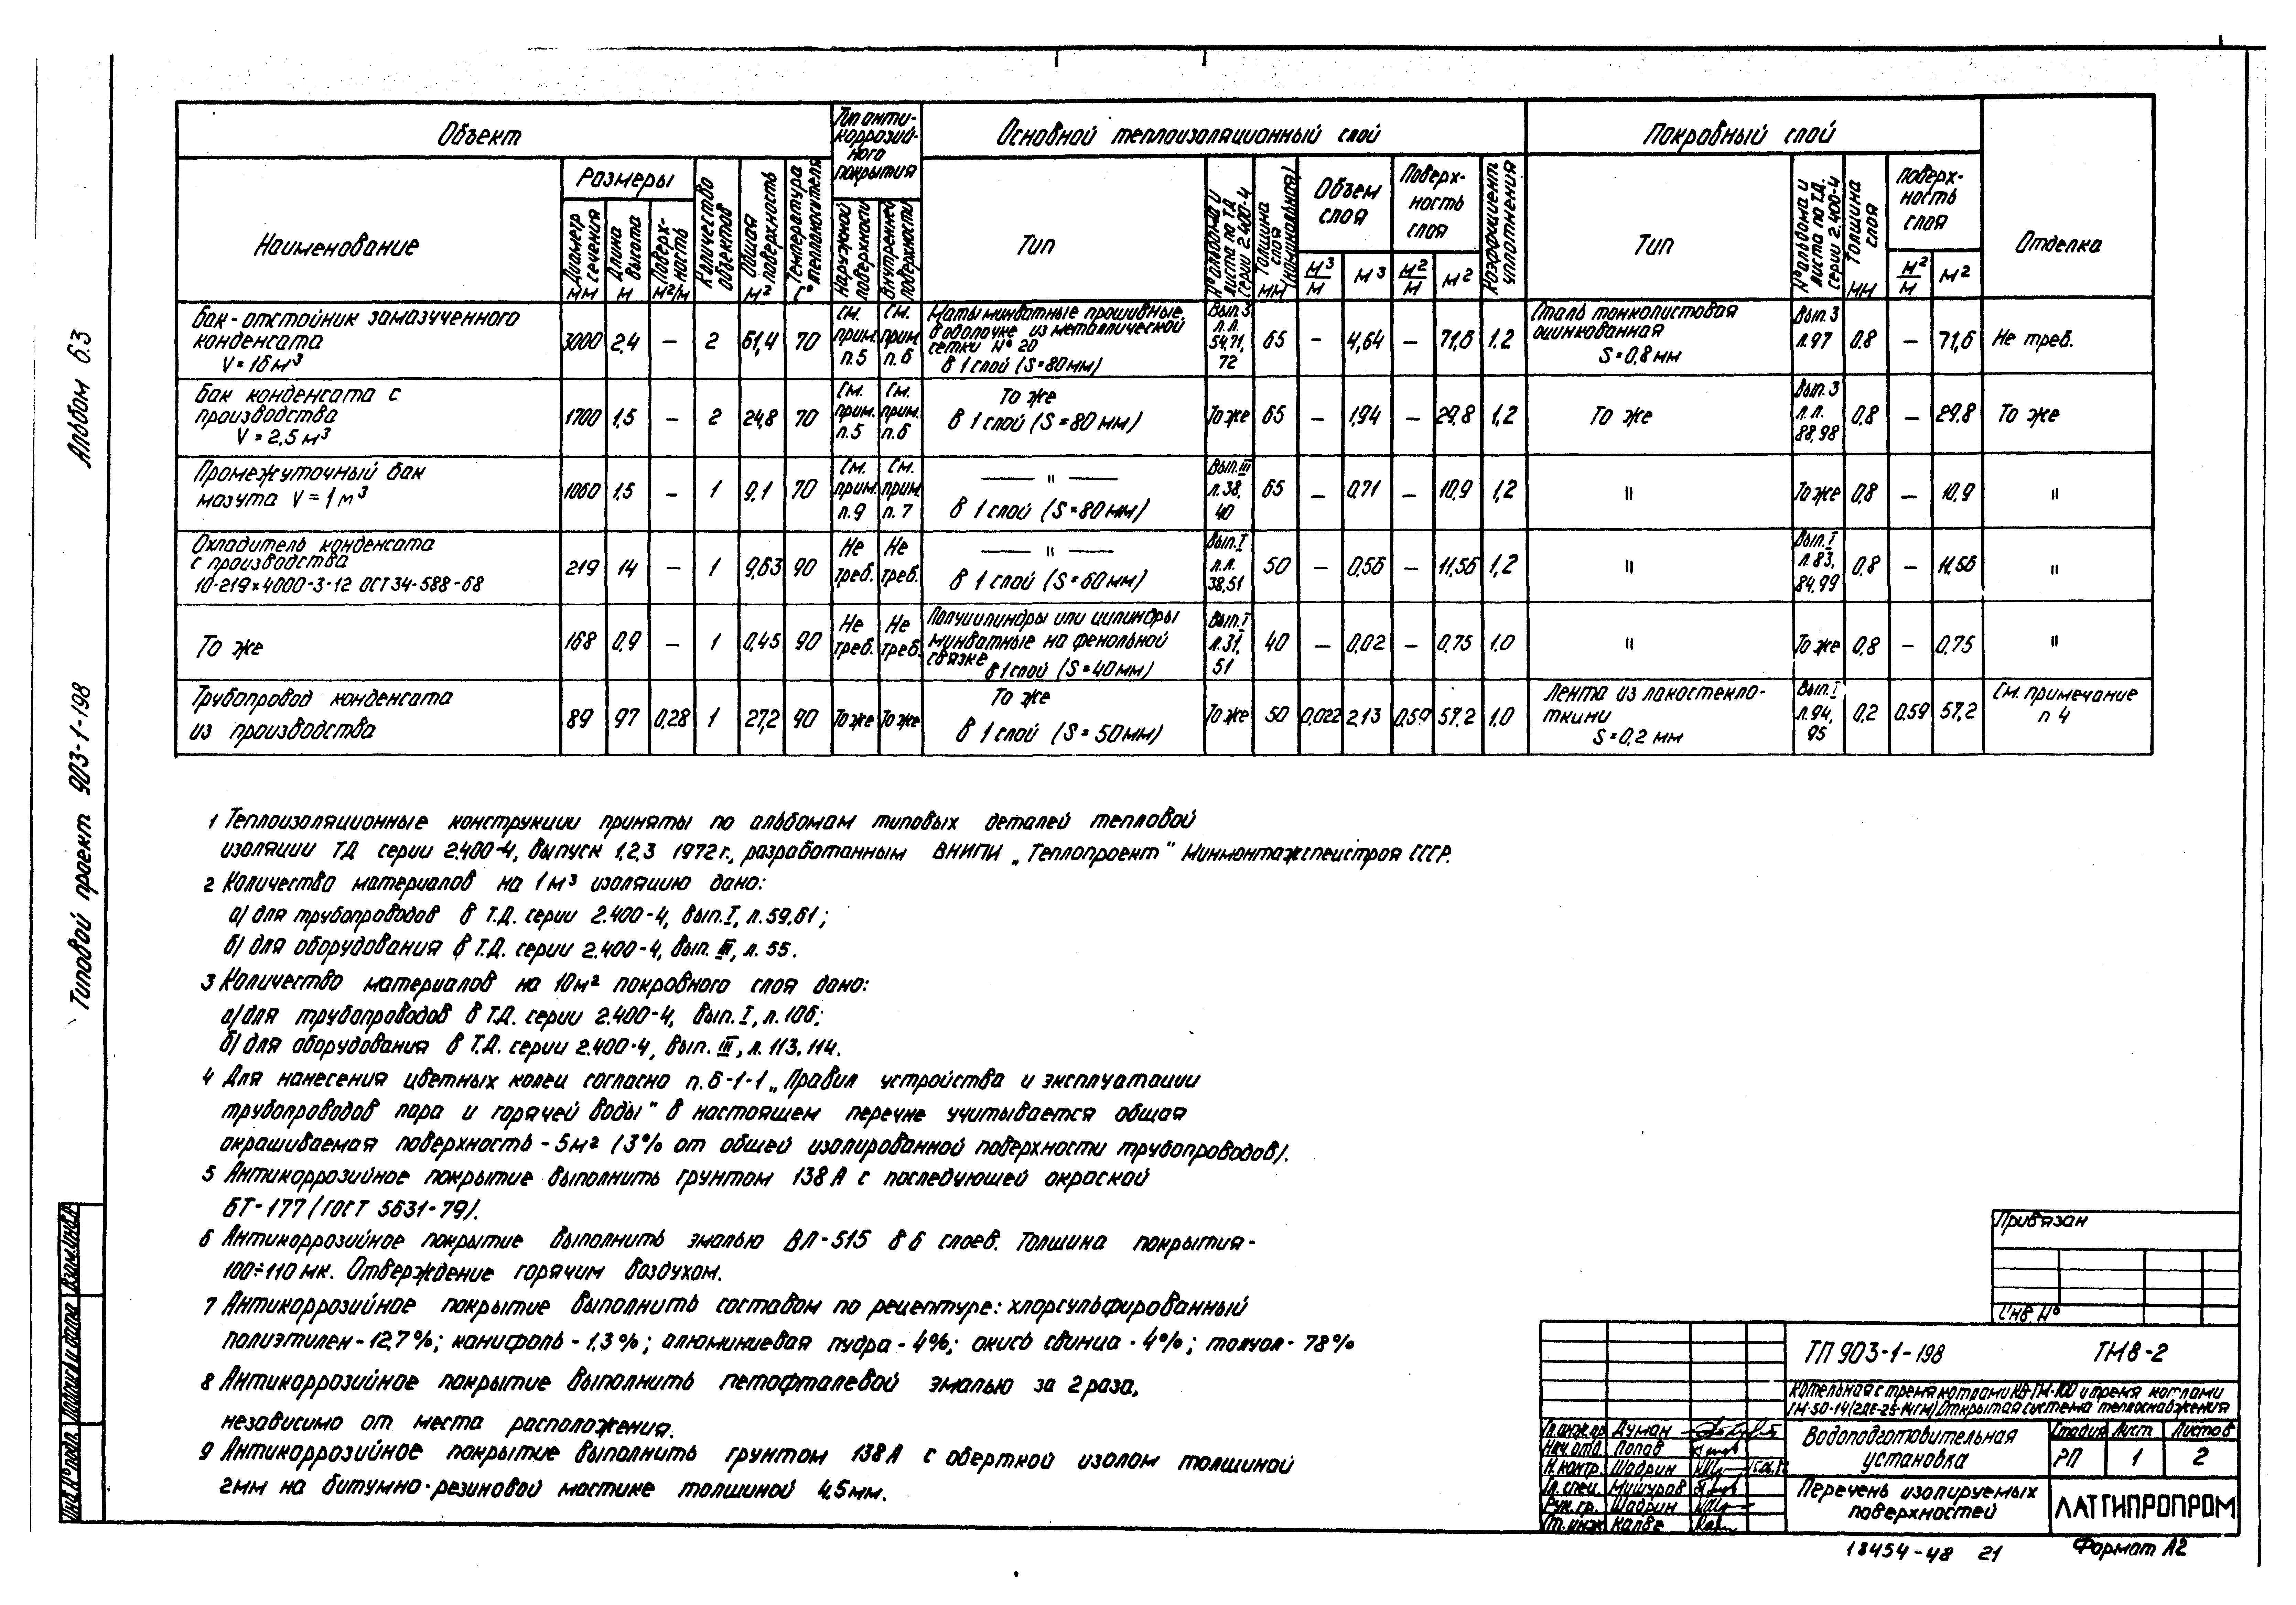 Альбом 6.3
Типовой проект 903-1-198
Объект
Тип анти-
коррозий-
ного
покрытия
Основной теплоизоляционный слой
Покровный слой
Отделка
Наименование
Размеры
Диаметр сечения мм
Длина высота м
Поверх-ность м2/м
Количество объектов
Общая поверхность м2
Температура теплоносителя С°
Наружной поверхности
Внутренней поверхности
Тип
№ альбома и листа по ТД серии 2.400-4
Толщина слоя (номинальная) мм
Объем слоя
м3/м
м3
Поверх-ность слоя
м2/м
м2
Коэффициент уплотнения
Тип
№ альбома и листа по Т.Д. серии 2.400-4
Толщина слоя мм
Поверх-ность слоя
м2/м
м2
Бак-отстойник замазученного конденсата V=16м3 | 3000 | 2,4 | — | 2 | 61,4 | 70 | См. прим. п.5 | См. прим. п.6 | Маты минватные прошивные, в оболочке из металлической сетки №20 в 1 слой (S=80мм) | Вып.3 л.л. 54,71, 72 | 65 | — | 4,64 | — | 71,6 | 1.2 | Сталь тонколистовая оцинкованная S=0,8мм | Вып.3 л.97 | 0.8 | — | 71,6 | Не треб.
Бак конденсата с производства V=2,5м3 | 1700 | 1,5 | — | 2 | 24,8 | 70 | См. прим. п.5 | См. прим. п.6 | То же в 1 слой (S=80мм) | То же | 65 | — | 1,94 | — | 29,8 | 1,2 | То же | Вып.3 л.л. 88,98 | 0.8 | — | 29.8 | То же
Промежуточный бак мазута V=1м3 | 1060 | 1,5 | — | 1 | 9,1 | 70 | См. прим. п.9 | См. прим. п.7 | — " — в 1 слой (S=80мм) | Вып.III л.38, 40 | 65 | — | 0,71 | — | 10,9 | 1,2 | " | То же | 0,8 | — | 10,9 | "
Охладитель конденсата с производства 10-219×4000-3-12 ОСТ34-588-68 | 219 | 14 | — | 1 | 9,63 | 90 | Не треб. | Не треб. | — " — в 1 слой (S=60мм) | Вып.I л.л. 38,51 | 50 | — | 0,56 | — | 11,56 | 1,2 | " | Вып.I л.83, 84,99 | 0,8 | — | 11,56 | "
То же | 168 | 0,9 | — | 1 | 0,45 | 90 | Не треб. | Не треб. | Полуцилиндры или цилиндры минватные на фенольной связке в 1 слой (S=40мм) | Вып.I л.31, 51 | 40 | — | 0,02 | — | 0,75 | 1.0 | " | То же | 0,8 | — | 0,75 | "
Трубопровод конденсата из производства | 89 | 97 | 0,28 | 1 | 27,2 | 90 | То же | То же | То же в 1 слой (S=50мм) | То же | 50 | 0,022 | 2,13 | 0,59 | 57.2 | 1.0 | Лента из лакостекло-ткини S=0,2 мм | Вып.I л.94, 95 | 0,2 | 0,59 | 57,2 | См. примечание п 4
1 Теплоизоляционные конструкции приняты по альбомам типовых деталей тепловой
изоляции ТД серии 2.400-4, выпуск 1,2,3 1972г., разработанным ВНИПИ „Теплопроект" Минмонтажспецстроя СССР.
2 Количество материалов на 1м3 изоляцию дано:
а) для трубопроводов в Т.Д. серии 2.400-4, вып.I, л.59,61;
б) для оборудования в Т.Д. серии 2.400-4, вып. III, л.55.
3 Количество материалов на 10м2 покровного слоя дано:
а) для трубопроводов в Т.Д. серии 2.400-4, вып.I, л.106;
б) для оборудования в Т.Д. серии 2.400-4, вып. III, л.113,114.
4 Для нанесения цветных колец согласно п.6-1-1 „Правил устройства и эксплуатации
трубопроводов пара и горячей воды" в настоящем перечне учитывается общая
окрашиваемая поверхность - 5м2 (3% от общей изолированной поверхности трубопроводов).
5 Антикоррозийное покрытие выполнить грунтом 138А с последующей окраской
БТ-177 (ГОСТ 5631-79).
6 Антикоррозийное покрытие выполнить эмалью ВЛ-515 в 6 слоев. Толщина покрытия-
100÷110мк. Отверждение горячим воздухом.
7 Антикоррозийное покрытие выполнить составом по рецептуре: хлорсульфированный
полиэтилен-12,7%; канифоль-1,3%; алюминиевая пудра-4%; окись свинца-4%; толуол-78%
8 Антикоррозийное покрытие выполнить петофталевой эмалью за 2 раза,
независимо от места расположения.
9 Антикоррозийное покрытие выполнить грунтом 138А с оберткой изолом толщиной
2мм на битумно-резиновой мастике толщиной 4,5мм.
Привязан
Инв.№
ТП 903-1-198 ТМ8-2
Котельная с тремя котлами КВ-ГМ-100 и тремя котлами
ГМ-50-14(2ДЕ-25-14ГМ) Открытая система теплоснабжения
Гл.инж.пр Думан
Нач.отд. Попов
Н.контр. Шадрин
Гл.спец. Мишуров
Рук.гр. Шадрин
Ст.инж Калве
Водоподготовительная
установка
Стадия Лист Листов
РП 1 2
Перечень изолируемых
поверхностей
ЛАТГИПРОПРОМ
18454-48 21
Формат А2
Инв.№подл. Подпись и дата Взам.инв.№